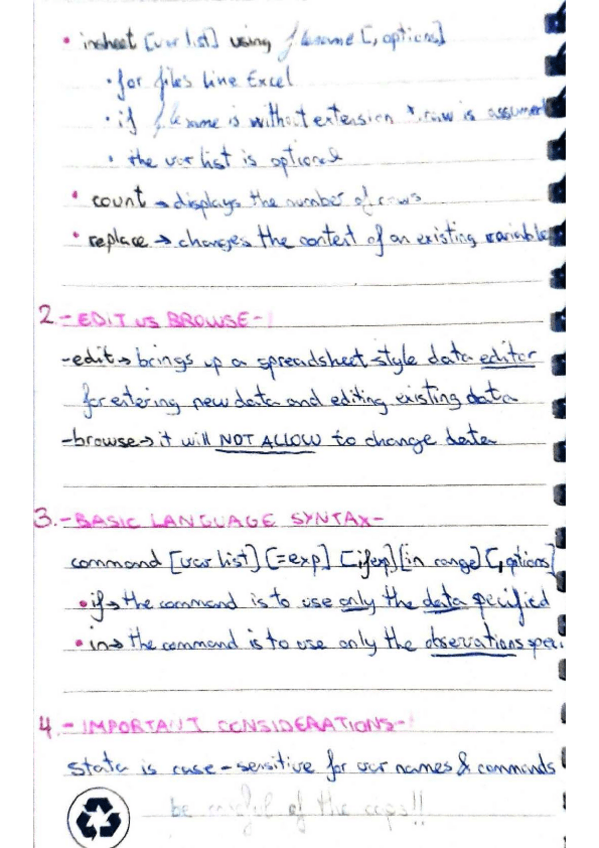 • insheet [var list] using filename [, options]
• for files like Excel
• if filename is without extension *.raw is assumed
• the var list is optional
• count → displays the number of rows
• replace → changes the content of an existing variable
2.- EDIT VS BROWSE -
- edit → brings up a spreadsheet-style data editor
for entering new data and editing existing data
- browse → it will NOT ALLOW to change data
3.- BASIC LANGUAGE SYNTAX -
command [var list] [=exp] [ifexp] [in range] [, options]
• if → the command is to use only the data specified
• in → the command is to use only the observations speci
4.- IMPORTANT CONSIDERATIONS -
Stata is case-sensitive for var names & commands
be careful of the caps!!